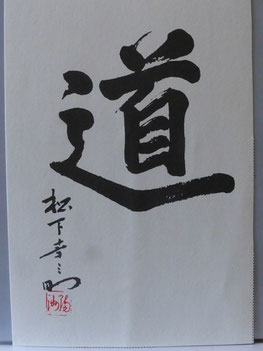 道
松下幸之助